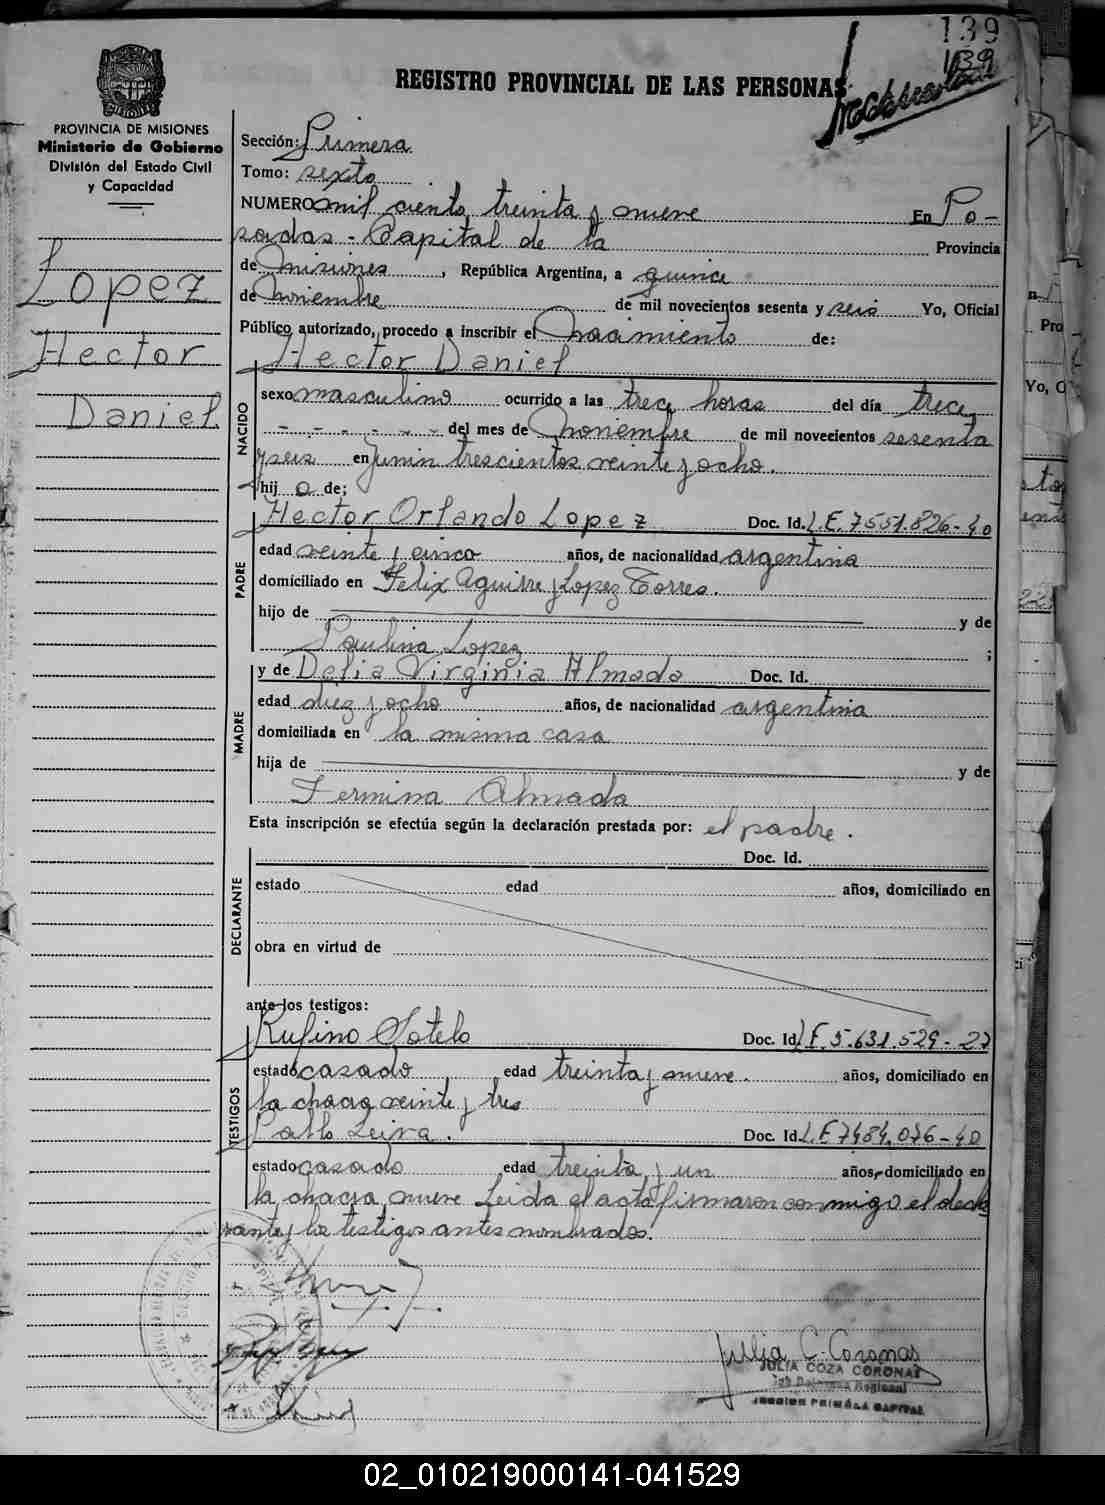 139
139
REGISTRO PROVINCIAL DE LAS PERSONAS
PROVINCIA DE MISIONES
Ministerio de Gobierno
División del Estado Civil
y Capacidad
Lopez
Hector
Daniel
Sección: Primera
Tomo: sexto
NUMERO mil ciento treinta y nueve En Po-
sadas - Capital de la Provincia
de Misiones, República Argentina, a quince
de Noviembre de mil novecientos sesenta y seis Yo, Oficial
Público autorizado, procedo a inscribir el Nacimiento de:
Hector Daniel
NACIDO
sexo masculino ocurrido a las trece horas del día trece
- - - - - - del mes de Noviembre de mil novecientos sesenta
y seis en Junin trescientos veinte y ocho.
hij o de;
PADRE
Hector Orlando Lopez Doc. Id. L.E. 7551.826-40
edad veinte y cinco años, de nacionalidad argentina
domiciliado en Felix Aguirre y Lopez Torres.
hijo de y de
Paulina Lopez ;
MADRE
y de Delia Virginia Almada Doc. Id.
edad diez y ocho años, de nacionalidad argentina
domiciliada en la misma casa
hija de y de
Fermina Almada
Esta inscripción se efectúa según la declaración prestada por: el padre.
DECLARANTE
Doc. Id.
estado edad años, domiciliado en
obra en virtud de
ante los testigos:
TESTIGOS
Rufino Sotelo Doc. Id. L.E. 5.631.529-27
estado casado edad treinta y nueve. años, domiciliado en
la chacra veinte y tres
Pablo Leiva. Doc. Id. L.E 7484.076-40
estado casado edad treinta y un años, domiciliado en
la chacra nueve Leida el acta firmaron conmigo el decla
rante y los testigos antes nombrados.
Julia C. Coronas
JULIA COZA CORONAS
SECCION PRIMERA CAPITAL
02_010219000141-041529